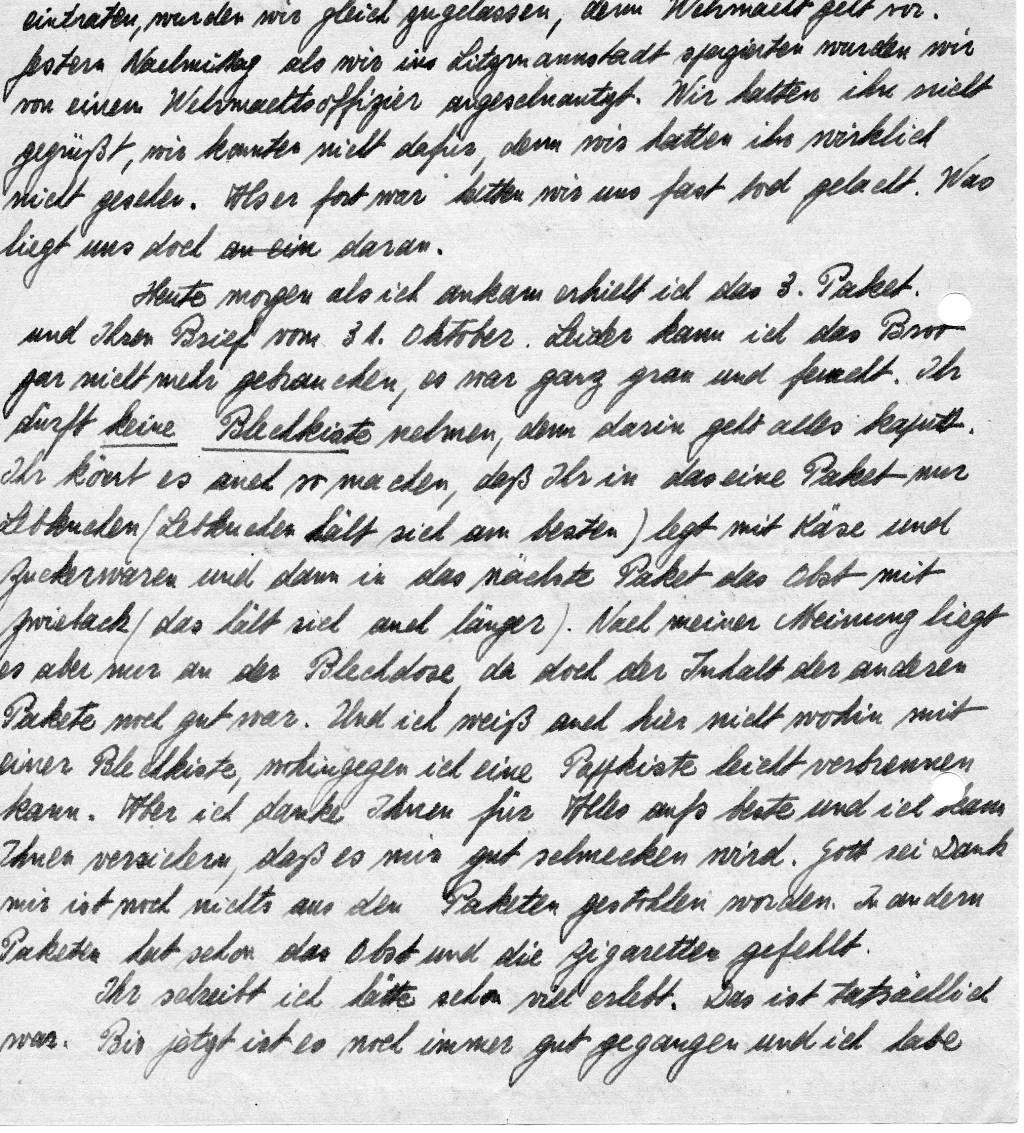 eintraten, wurden wir gleich zugelassen, denn Wehrmacht geht vor.
gestern Nachmittag als wir ins Litzmannstadt spazierten wurden wir
von einem Wehrmachtsoffizier angeschnautzt. Wir hatten ihn nicht
gegrüßt, wir konnten nicht dafür, denn wir hatten ihn wirklich
nicht gesehen. Als er fort war hätten wir uns fast tod gelacht. Was
liegt uns doch an ein daran.
Heute morgen als ich ankam erhielt ich das 3. Paket.
und Ihren Brief vom 31. Oktober. Leider kann ich das Brot
gar nicht mehr gebrauchen, es war ganz grau und feucht. Ihr
dürft keine Blechkiste nehmen, denn darin geht alles kaputt.
Ihr könnt es auch so machen, daß Ihr in das eine Paket nur
Lebkuchen (Lebkuchen hält sich am besten) legt mit Käse und
Zuckerwaren und dann in das nächste Paket das Obst mit
Zwieback (das hält sich auch länger). Nach meiner Meinung liegt
es aber nur an der Blechdose, da doch der Inhalt der anderen
Pakete noch gut war. Und ich weiß auch hier nicht wohin mit
einer Blechkiste, wohingegen ich eine Pappkiste leicht verbrennen
kann. Aber ich danke Ihnen für Alles aufs beste und ich kann
Ihnen versichern, daß es mir gut schmecken wird. Gott sei Dank
mir ist noch nichts aus den Paketen gestohlen worden. In andern
Paketen hat schon das Obst und die Zigaretten gefehlt.
Ihr schreibt ich hätte schon viel erlebt. Das ist tatsächlich
war. Bis jetzt ist es noch immer gut gegangen und ich habe